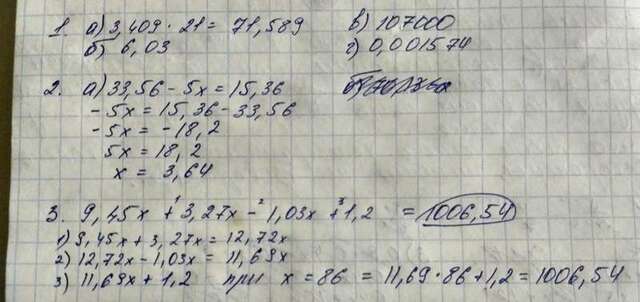 1. а) 3,409 · 21 = 71,589
в) 107000
б) 6,03
г) 0,001574
2. а) 33,56 - 5x = 15,36
-5x = 15,36 - 33,56
-5x = -18,2
5x = 18,2
x = 3,64
3. 9,45x +¹ 3,27x -² 1,03x +³ 1,2 = 1006,54
1) 9,45x + 3,27x = 12,72x
2) 12,72x - 1,03x = 11,69x
3) 11,69x + 1,2 при x = 86 = 11,69 · 86 + 1,2 = 1006,54